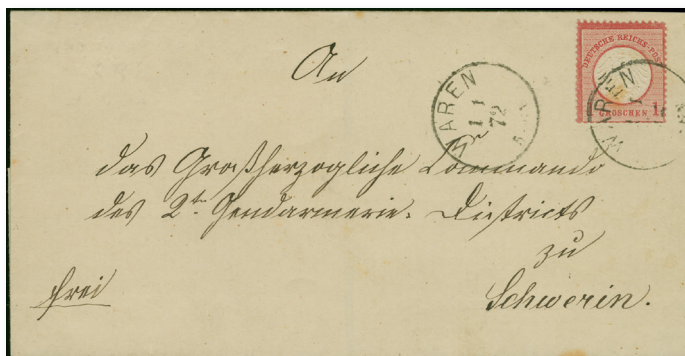 An
WAREN
1 1
72
DEUTSCHE REICHS-POST
GROSCHEN
WAREN
das Großherzogliche Commando
des 2ten Gendarmerie-Districts
zu
frei
Schwerin.